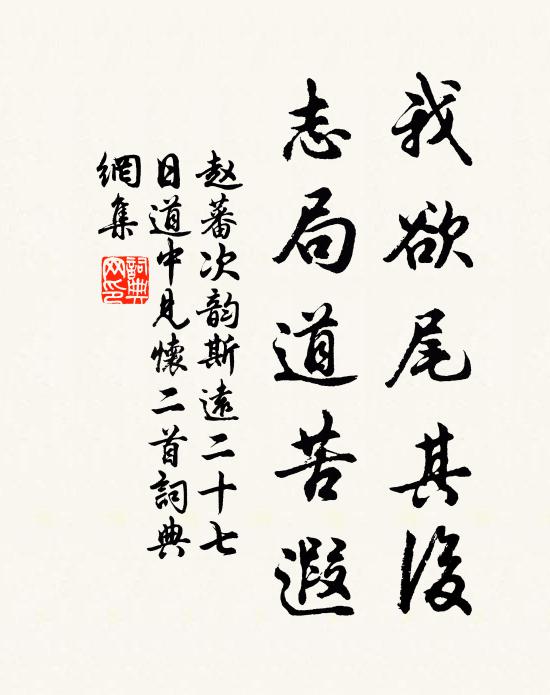 我欲尾其後
志局道苦遐
赵蕃次韵斯遠二十七
日道中見懷二首詞典
網集
詞典網印